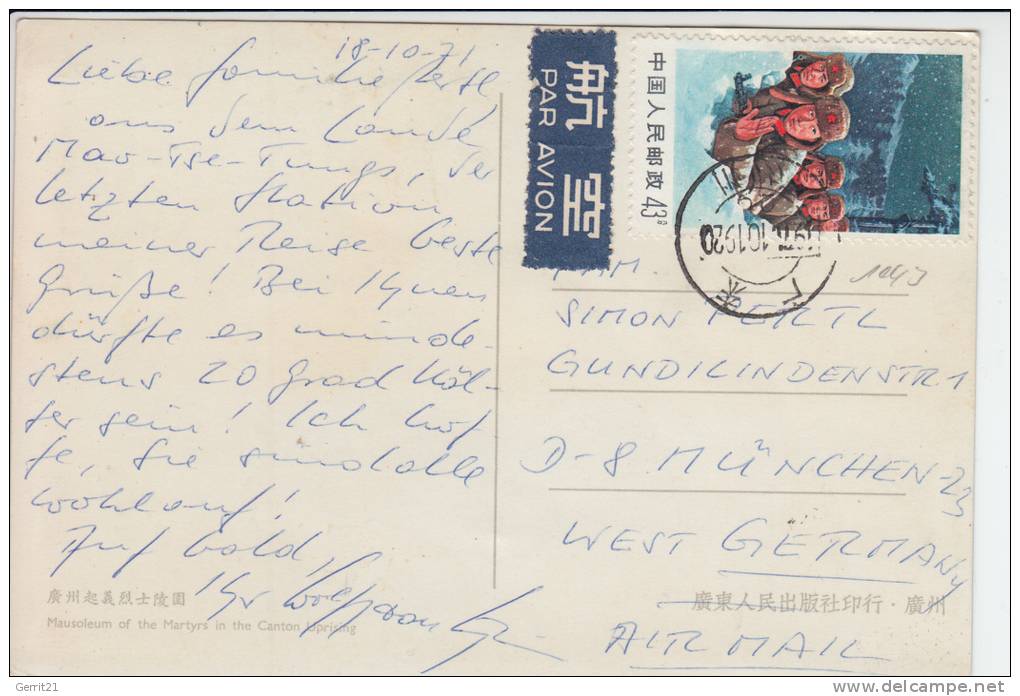 18-10-71
Liebe Familie Pertl,
aus dem Lande
Mao-Tse-Tungs, der
letzten Station
meiner Reise beste
Grüße! Bei Ihnen
dürfte es minde-
stens 20 Grad käl-
ter sein! Ich hof-
fe, Sie sind alle
wohlauf!
Auf bald,
Ihr Wolfram
廣州起義烈士陵園
Mausoleum of the Martyrs in the Canton Uprising
航空
PAR AVION
中国人民邮政
43
1971.10.19.20
FAM.
SIMON PERTL
GUNDILINDENSTR. 1
D-8 MÜNCHEN 23
WEST GERMANY
廣東人民出版社印行·廣州
AIR MAIL
Gerrit21
delcampe.net